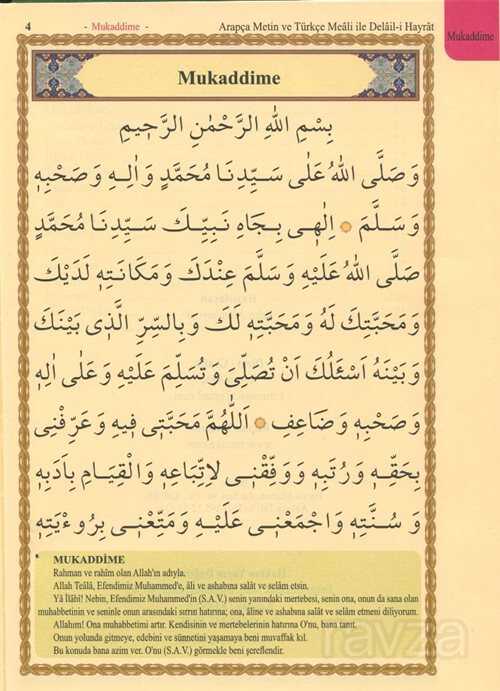 4 - Mukaddime - Arapça Metin ve Türkçe Meâli ile Delâil-i Hayrât
Mukaddime
Mukaddime
بِسْمِ اللّٰهِ الرَّحْمٰنِ الرَّحٖيمِ
وَصَلَّى اللّٰهُ عَلٰى سَيِّدِنَا مُحَمَّدٍ وَاٰلِهٖ وَصَحْبِهٖ
وَسَلَّمَ اِلٰهٖى بِجَاهِ نَبِيِّكَ سَيِّدِنَا مُحَمَّدٍ
صَلَّى اللّٰهُ عَلَيْهِ وَسَلَّمَ عِنْدَكَ وَمَكَانَتِهٖ لَدَيْكَ
وَمَحَبَّتِكَ لَهُ وَمَحَبَّتِهٖ لَكَ وَبِالسِّرِّ الَّذٖى بَيْنَكَ
وَبَيْنَهُ اَسْئَلُكَ اَنْ تُصَلِّىَ وَتُسَلِّمَ عَلَيْهِ وَعَلٰى اٰلِهٖ
وَصَحْبِهٖ وَضَاعِفِ اَللّٰهُمَّ مَحَبَّتٖى فٖيهِ وَعَرِّفْنٖى
بِحَقِّهٖ وَرُتَبِهٖ وَوَفِّقْنٖى لِاِتِّبَاعِهٖ وَالْقِيَامِ بِاَدَبِهٖ
وَسُنَّتِهٖ وَاجْمَعْنٖى عَلَيْهِ وَمَتِّعْنٖى بِرُوءْيَتِهٖ
MUKADDİME
Rahman ve rahîm olan Allah'ın adıyla.
Allah Teâlâ, Efendimiz Muhammed'e, âli ve ashabına salât ve selâm etsin.
Yâ İlâhî! Nebin, Efendimiz Muhammed'in (S.A.V.) senin yanındaki mertebesi, senin ona, onun da sana olan
muhabbetinin ve seninle onun arasındaki sırrın hatırına; ona, âline ve ashabına salât ve selâm etmeni diliyorum.
Allahım! Ona muhabbetimi artır. Kendisinin ve mertebelerinin hatırına O'nu, bana tanıt.
Onun yolunda gitmeye, edebini ve sünnetini yaşamaya beni muvaffak kıl.
Bu konuda bana azim ver. O'nu (S.A.V.) görmekle beni şereflendir.
ravza